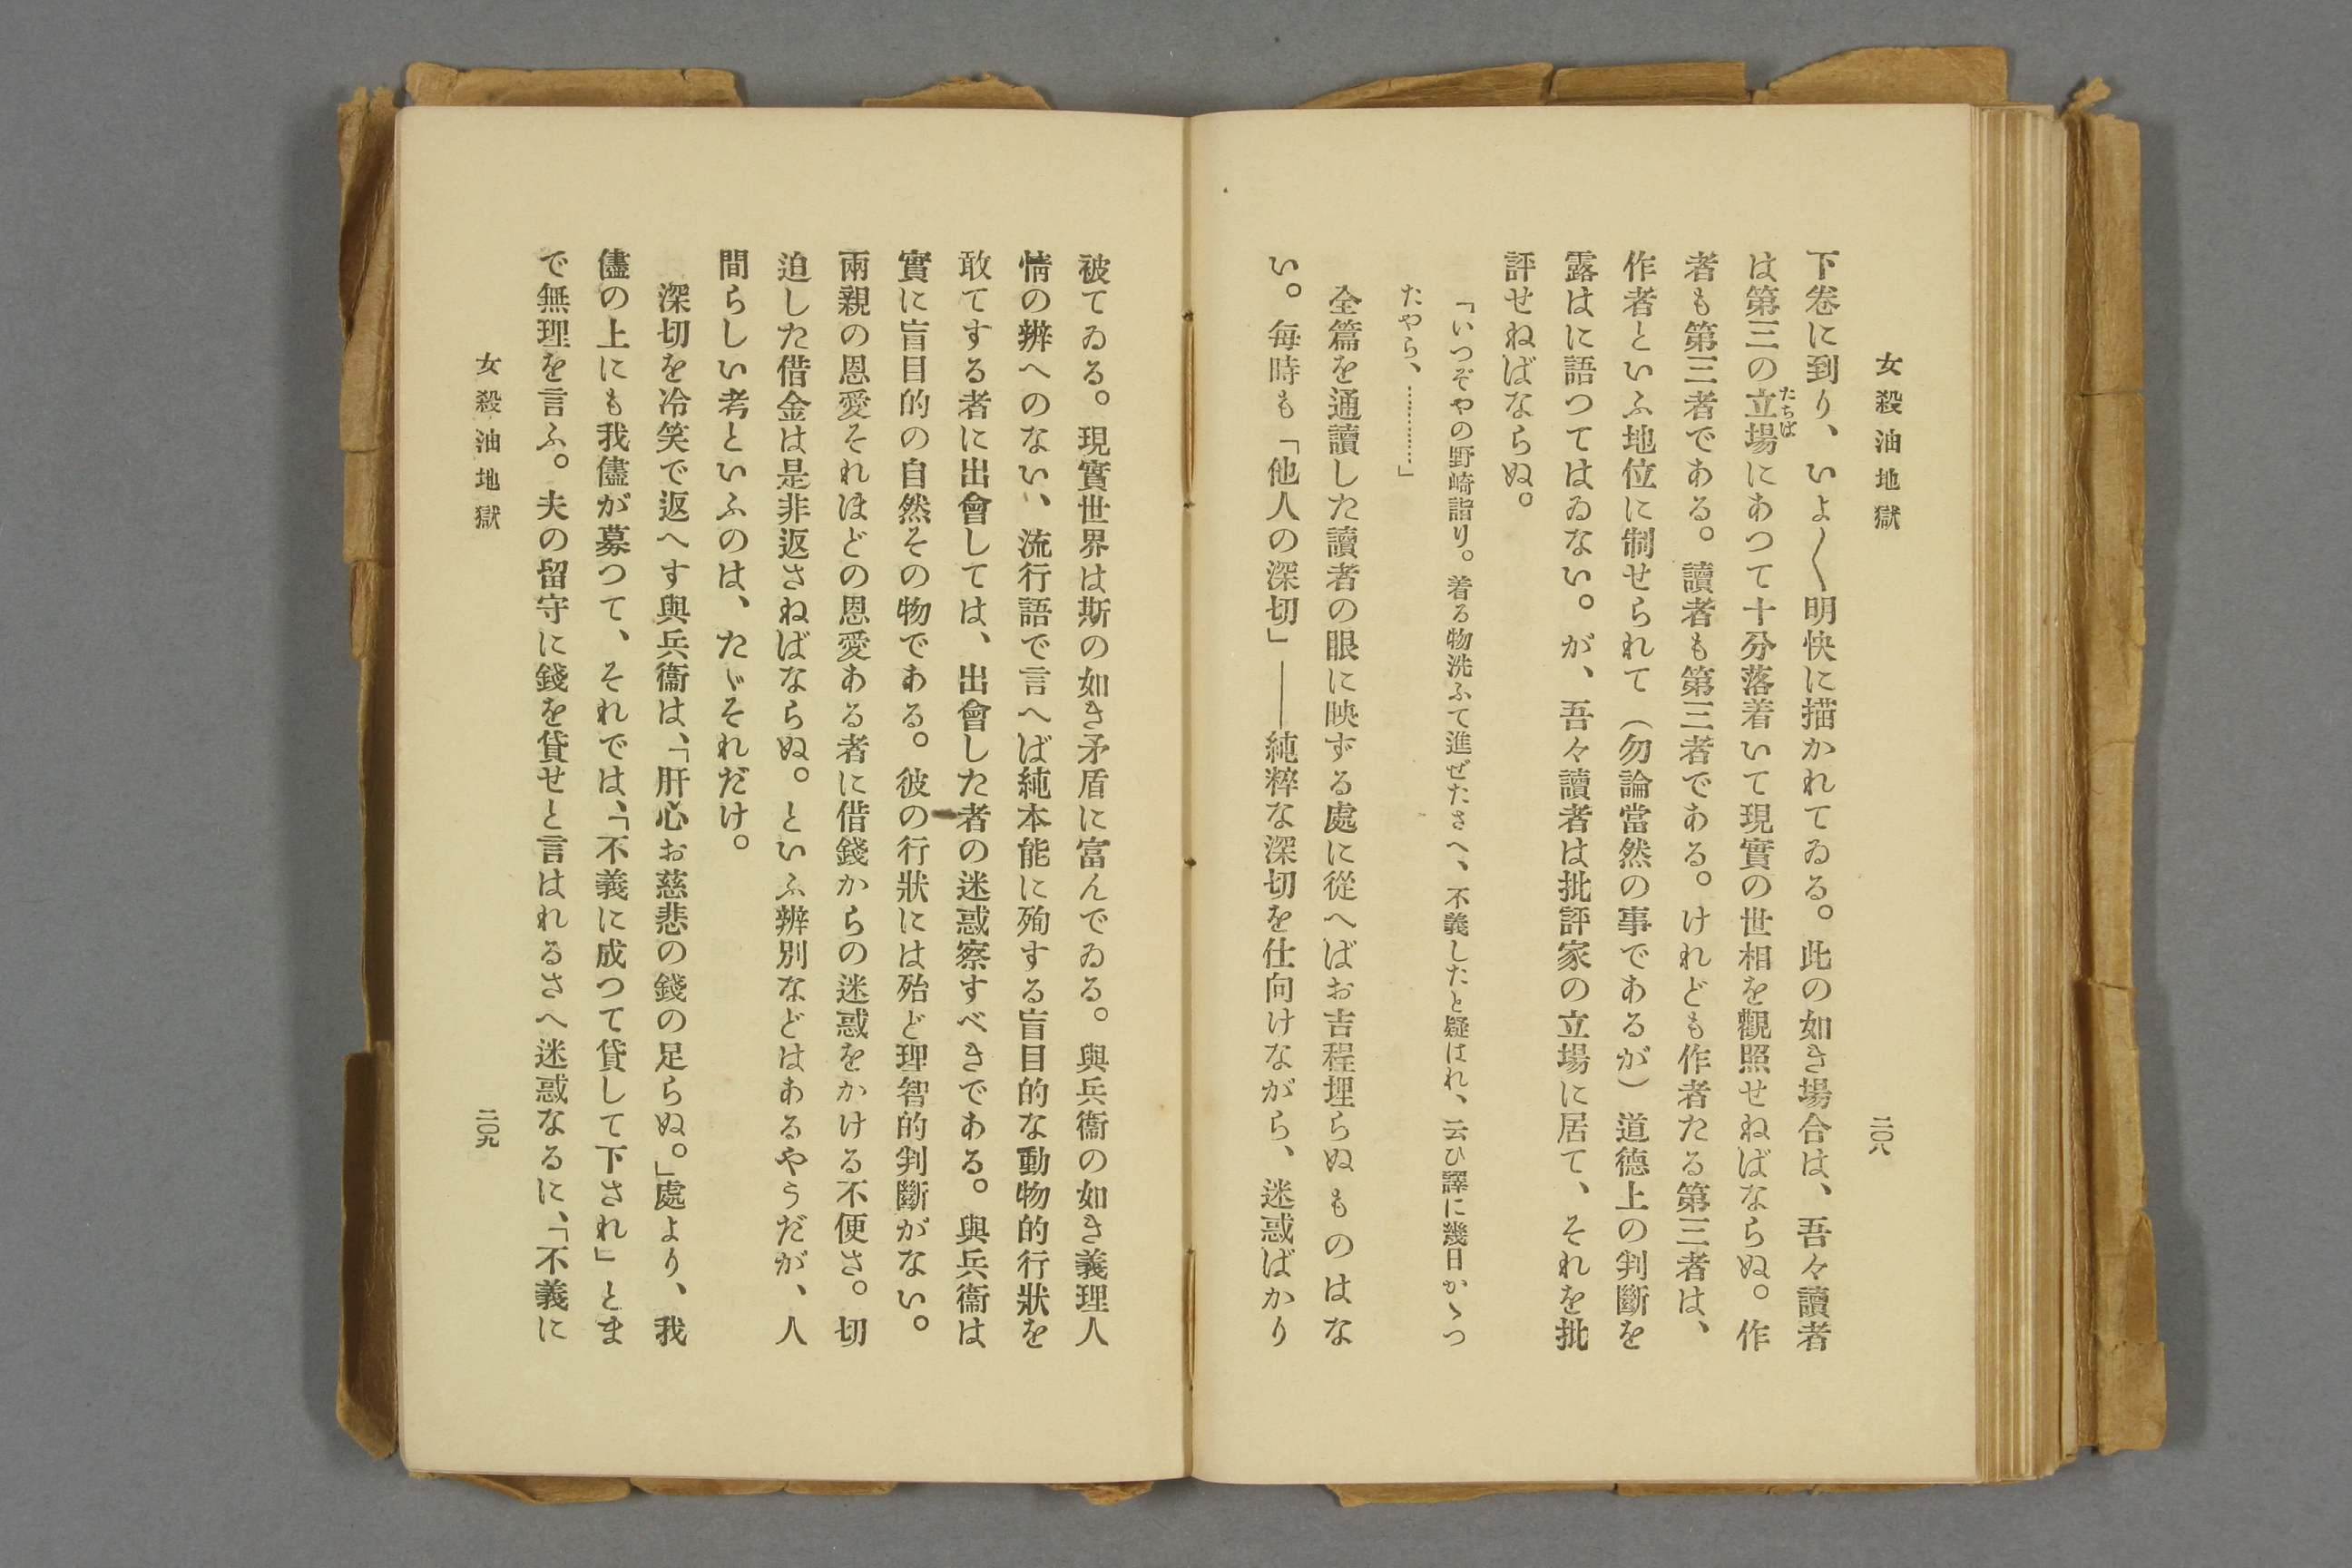 女殺油地獄
二〇八
下卷に到り、いよ〱明快に描かれてゐる。此の如き場合は、吾々讀者
は第三の立場にあつて十分落着いて現實の世相を觀照せねばならぬ。作
たちば
者も第三者である。讀者も第三者である。けれども作者たる第三者は、
作者といふ地位に制せられて（勿論當然の事であるが）道德上の判斷を
露はに語つてはゐない。が、吾々讀者は批評家の立場に居て、それを批
評せねばならぬ。
「いつぞやの野崎詣り。着る物洗ふて進ぜたさへ、不義したと疑はれ、云ひ譯に幾日かゝつ
たやら、…………」
全篇を通讀した讀者の眼に映ずる處に從へばお吉程埋らぬものはな
い。每時も「他人の深切」――純粹な深切を仕向けながら、迷惑ばかり
被てゐる。現實世界は斯の如き矛盾に富んでゐる。與兵衞の如き義理人
情の辨へのない、流行語で言へば純本能に殉する盲目的な動物的行狀を
敢てする者に出會しては、出會した者の迷惑察すべきである。與兵衞は
實に盲目的の自然その物である。彼の行狀には殆ど理智的判斷がない。
兩親の恩愛それほどの恩愛ある者に借錢からの迷惑をかける不便さ。切
迫した借金は是非返さねばならぬ。といふ辨別などはあるやうだが、人
間らしい考といふのは、たゞそれだけ。
深切を冷笑で返へす與兵衞は、「肝心お慈悲の錢の足らぬ。」處より、我
儘の上にも我儘が募つて、それでは、「不義に成つて貸して下され」とま
で無理を言ふ。夫の留守に錢を貸せと言はれるさへ迷惑なるに、「不義に
女殺油地獄
二〇九